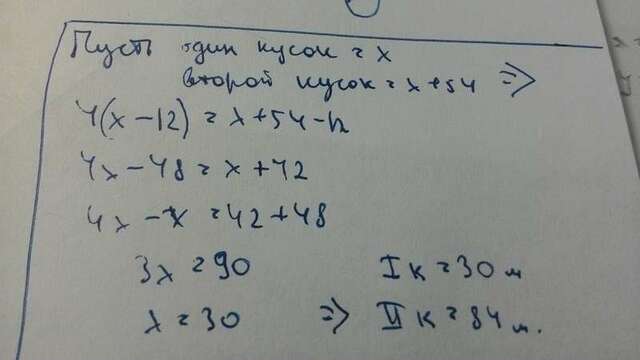 Пусть один кусок = x
второй кусок = x+54 =>
4(x-12) = x+54-12
4x-48 = x+42
4x-x = 42+48
3x = 90 I к = 30 м
x = 30 => II к = 84 м.